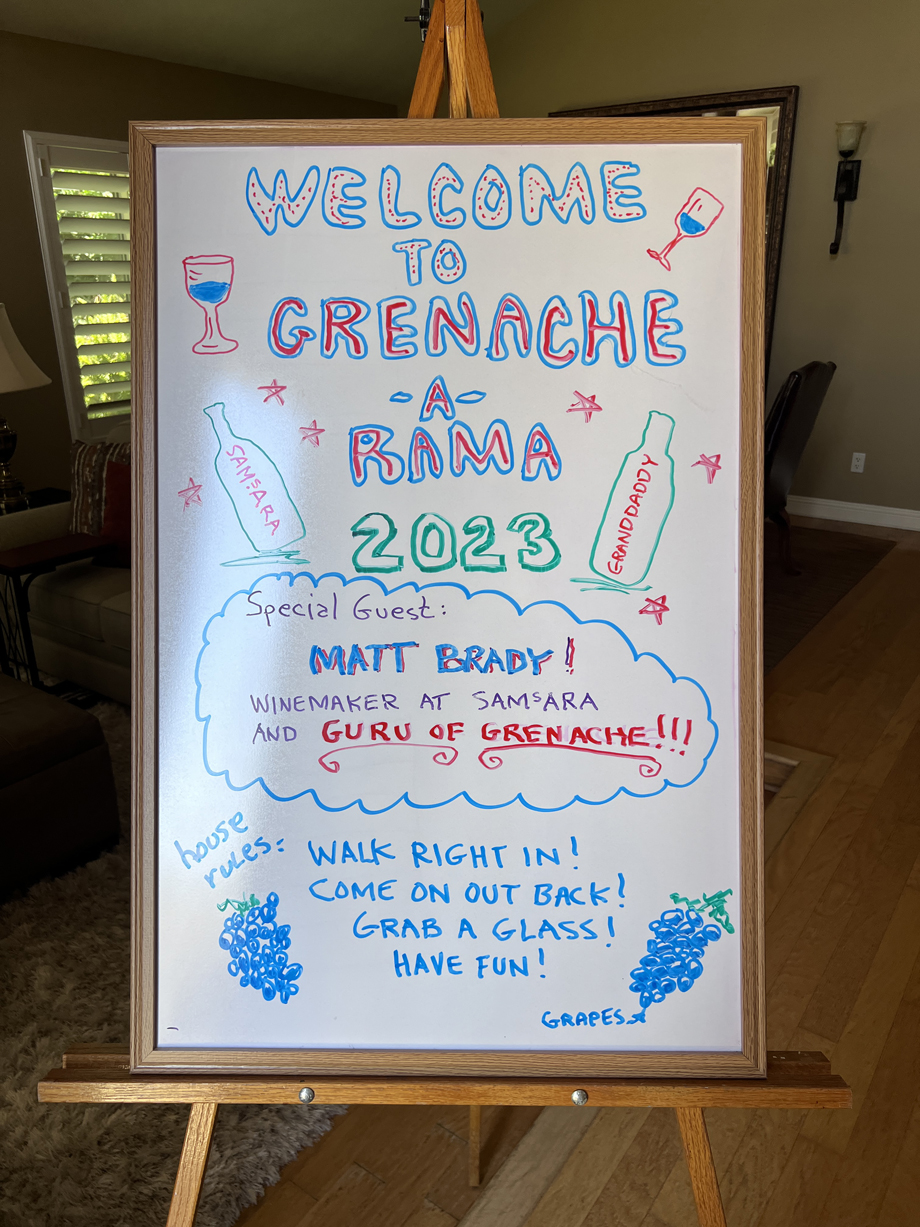 WELCOME
TO
GRENACHE
-A-
RAMA
SAMsARA
GRANDDADDY
2023
Special Guest:
MATT BRADY!
WINEMAKER AT SAMsARA
AND GURU OF GRENACHE!!!
house
rules:
WALK RIGHT IN!
COME ON OUT BACK!
GRAB A GLASS!
HAVE FUN!
GRAPES